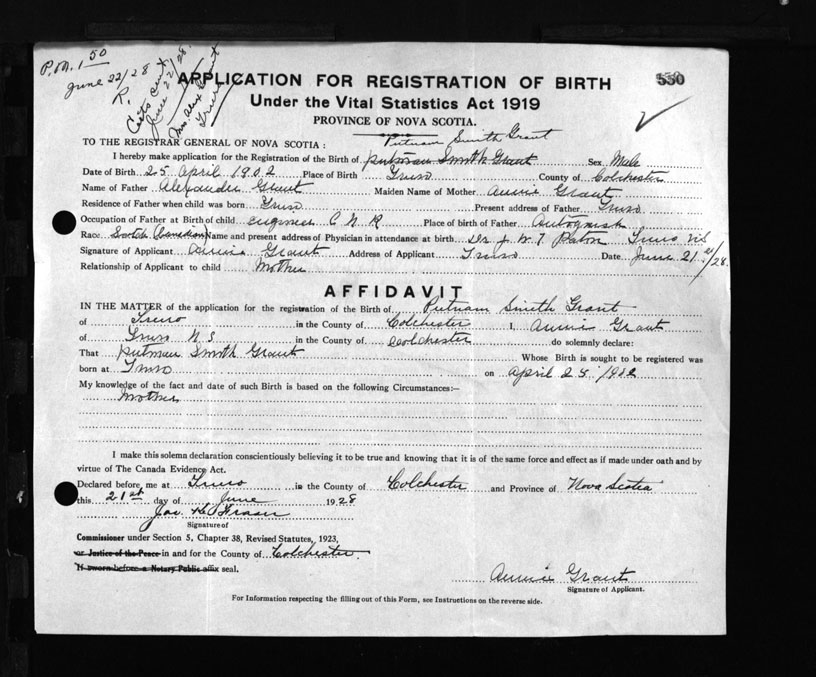 P.M. 1 50
June 22/28
R.
Certs Cent
June 22/28
Mrs. Alex Grant
Truro
APPLICATION FOR REGISTRATION OF BIRTH
550
Under the Vital Statistics Act 1919
PROVINCE OF NOVA SCOTIA.
Putnam Smith Grant
TO THE REGISTRAR GENERAL OF NOVA SCOTIA :
I hereby make application for the Registration of the Birth of Putman Smith Grant Sex Male
Date of Birth 25 April 1902 Place of Birth Truro County of Colchester
Name of Father Alexander Grant Maiden Name of Mother Annie Grant
Residence of Father when child was born Truro Present address of Father Truro
Occupation of Father at Birth of child engineer C N R Place of birth of Father Antigonish
Race Scotch Canadian Name and present address of Physician in attendance at birth Dr J. W. T. Paton Truro NS
Signature of Applicant Annie Grant Address of Applicant Truro Date June 21st/28.
Relationship of Applicant to child Mother
AFFIDAVIT
IN THE MATTER of the application for the registration of the Birth of Putnam Smith Grant
of Truro in the County of Colchester I, Annie Grant
of Truro N S in the County of Colchester do solemnly declare:
That Putman Smith Grant Whose Birth is sought to be registered was
born at Truro on April 25 1902
My knowledge of the fact and date of such Birth is based on the following Circumstances:—
Mother
I make this solemn declaration conscientiously believing it to be true and knowing that it is of the same force and effect as if made under oath and by
virtue of The Canada Evidence Act.
Declared before me at Truro in the County of Colchester and Province of Nova Scotia
this 21st day of June 1928
Jas. Fraser
Signature of
Commissioner under Section 5, Chapter 38, Revised Statutes, 1923,
or Justice of the Peace in and for the County of Colchester.
If sworn before a Notary Public affix seal.
Annie Grant
Signature of Applicant.
For Information respecting the filling out of this Form, see Instructions on the reverse side.